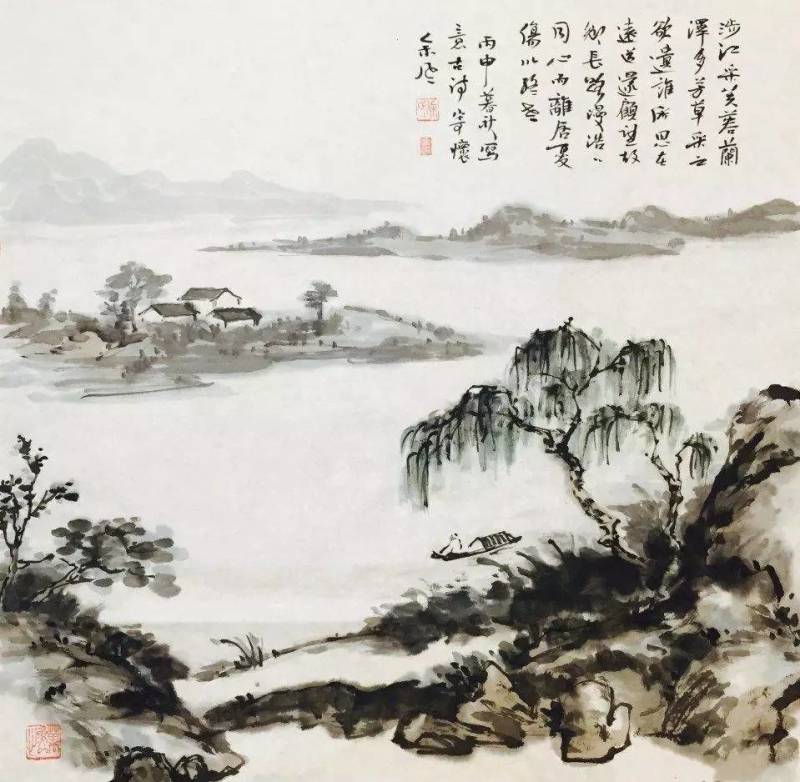 涉江采芙蓉蘭
澤多芳草采之
欲遺誰所思在
遠道還顧望故
鄉長路漫浩〻
同心而離居憂
傷以終老
丙申暮秋寫
意古诗寄懷